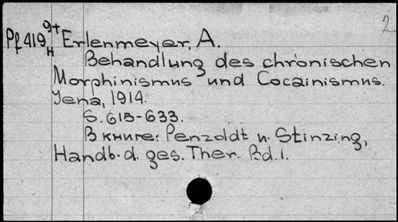 2
Pf419 9+ Erlenmeyer, A.
H
Behandlung des chronischen
Morphinismus und Cocainismus.
Jena, 1914.
S. 613-633.
В книге: Penzoldt u. Stinzing,
Handb. d. ges. Ther. Bd. 1.